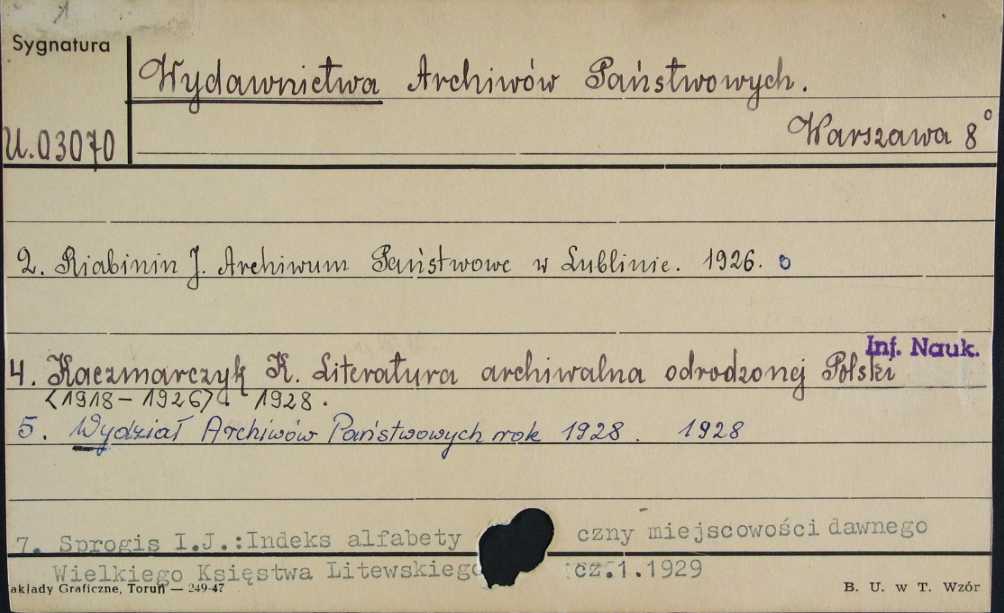 Sygnatura
Wydawnictwa Archiwów Państwowych.
Warszawa 8°
U.03070
2. Riabinin J. Archiwum Państwowe w Lublinie. 1926. o
Inf. Nauk.
4. Kaczmarczyk K. Literatura archiwalna odrodzonej Polski
<1918-1926>. 1928.
5. Wydział Archiwów Państwowych rok 1928. 1928
7. Sprogis I.J.:Indeks alfabety czny miejscowości dawnego
Wielkiego Księstwa Litewskiego cz.1.1929
akłady Graficzne, Toruń — 249-47
B. U. w T. Wzór